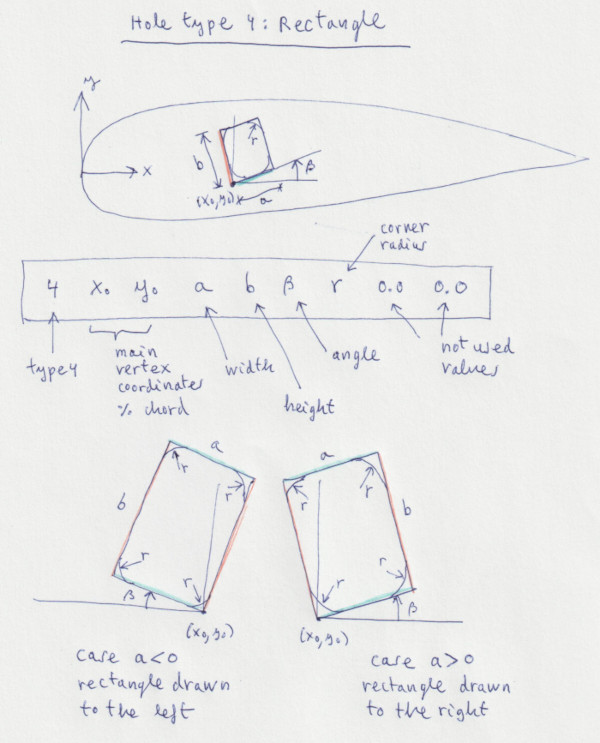 Hole type 4: Rectangle
y
x
b
r
β
(x₀,y₀)
a
corner
radius
4 x₀ y₀ a b β r 0.0 0.0
type 4
main
vertex
coordinates
% chord
width
height
angle
not used
values
a
r
r
b
r
r
β
(x₀,y₀)
a
r
r
b
r
r
β
(x₀,y₀)
case a<0
rectangle drawn
to the left
case a>0
rectangle drawn
to the right